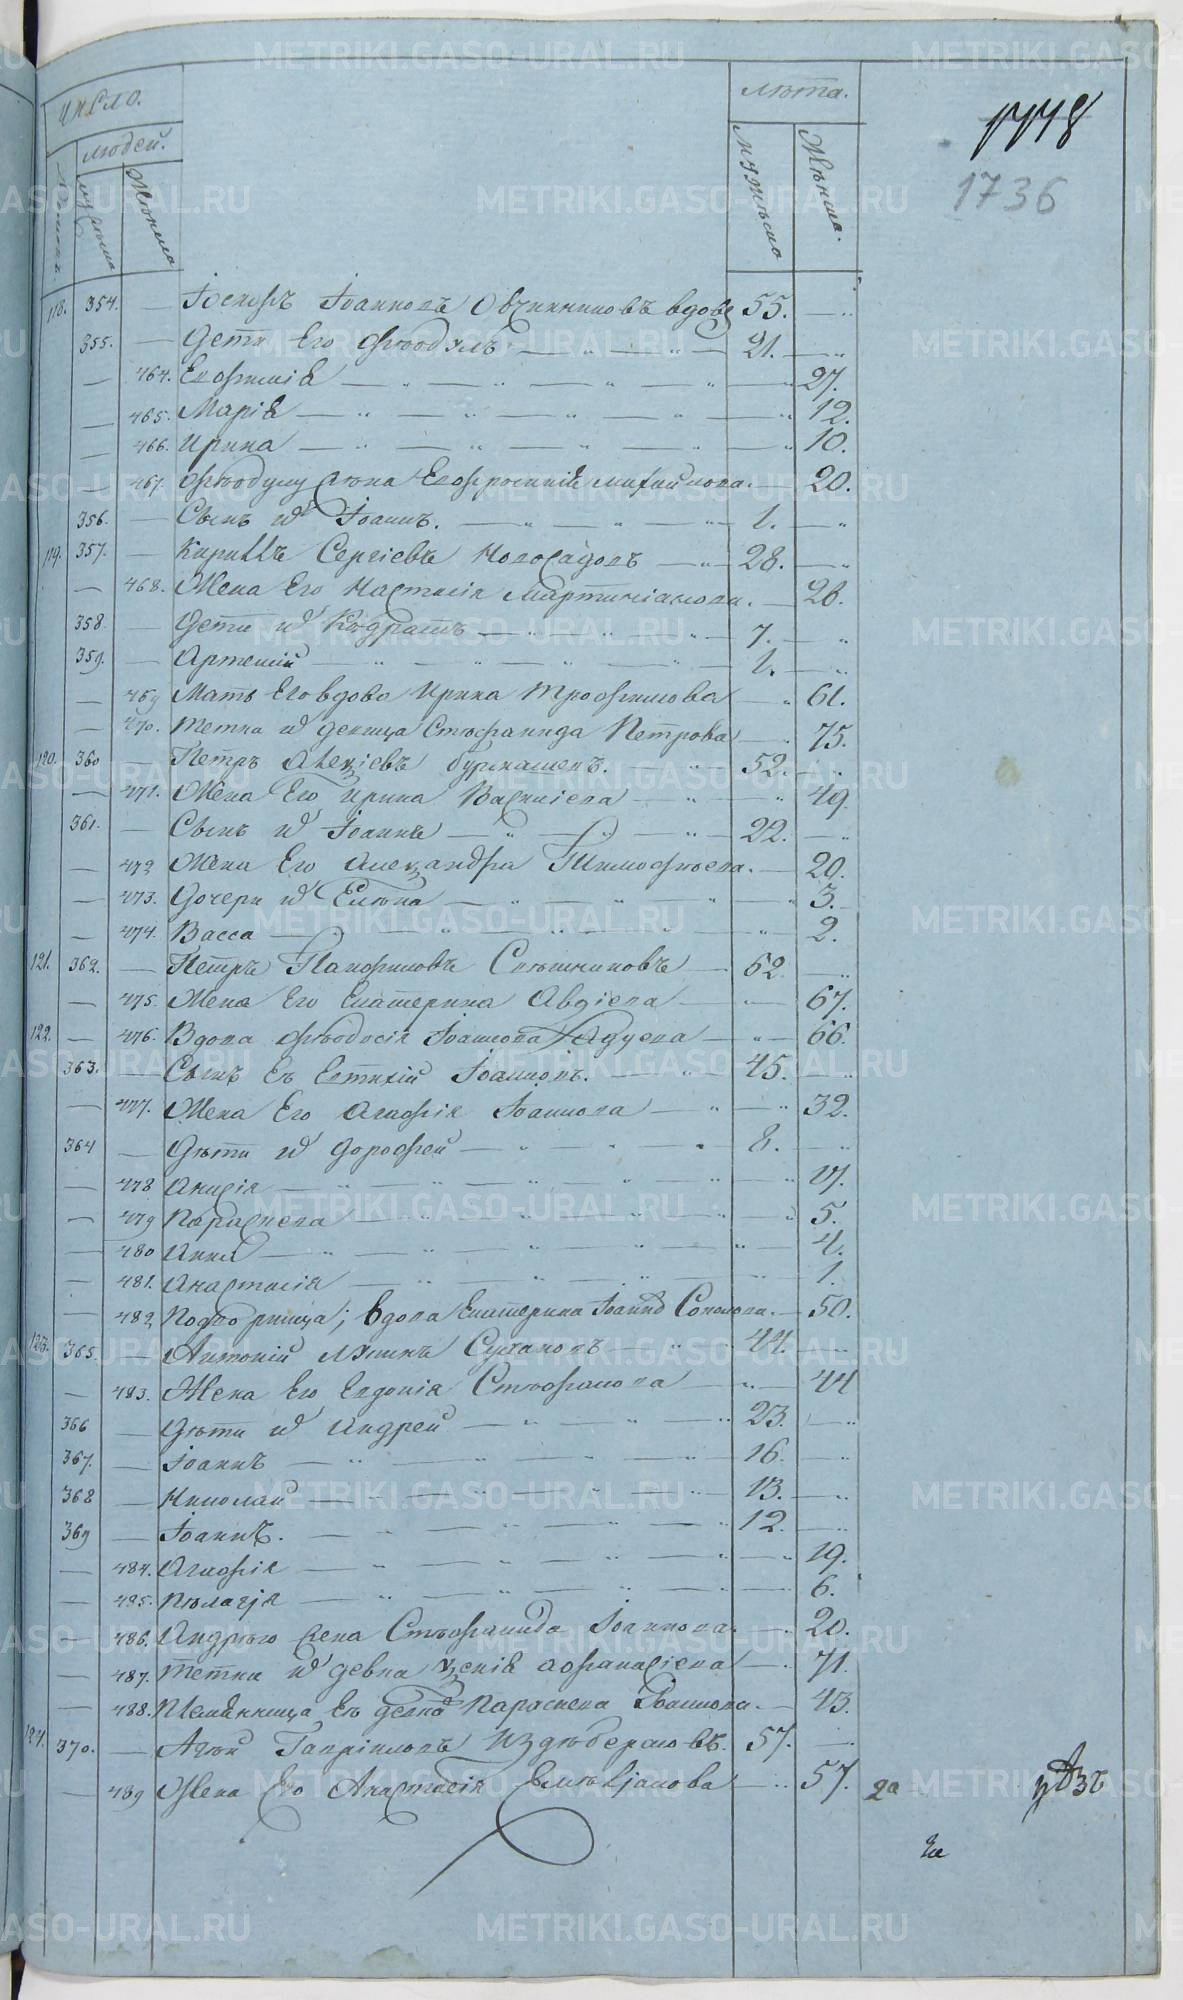 число.
людей.
мужеска
женска
лѣта.
мужеска
женска.
1778
1736
118. 354. — Іосифъ Іоанновъ Овчинниковъ вдовъ 55. —
355. — Дети Его Ѳеодулъ — 21. —
— 464. Евфимія — 27.
— 465. Марія — 12.
— 466. Ирина — 10.
— 467. Ѳеодулу жена Евфросинія Михайлова. — 20.
356. — Сынъ их Іоаннъ. — 1. —
119. 357. — Кириллъ Сергіевъ Новосадовъ — 28. —
— 468. Жена Его Настасія Мартиніанова. — 26.
358. — Дети их Кодратъ — 7. —
359. — Артемій — 1. —
— 469 Мать Его вдова Ирина Трофимова — 61.
— 470. Тетка их девица Стефанида Петрова — 75.
120. 360 — Петръ Алексіевъ Бурнашевъ. — 52. —
— 471. Жена Его Ирина Василіева — 49.
361. — Сынъ их Іоаннъ — 22. —
— 472 Жена Его Александра Тимофеева. — 20.
— 473. Дочери их Елена — 3.
— 474. Васса — 2.
121. 362. — Петръ Панфиловъ Слешниковъ — 62 —
— 475. Жена Его Екатерина Авдіева — 67.
122. — 476. Вдова Ѳеодосія Іоаннова — 66.
363. — Сынъ Ея Евтихій Іоанновъ. — 45. —
— 477. Жена Его Агафія Іоаннова — 32.
364 — Дѣти их Дорофей — 8. —
— 478 Анисія — 17.
— 479 Параскева — 5.
— 480 Анна — 4.
— 481. Анастасія — 1.
— 482 Подворница; вдова Екатерина Іоаннова Соколова. — 50.
123. 365. — Антоній Лукинъ Сухановъ — 44. —
— 483. Жена Его Евдокія Стефанова — 44
366 — Дѣти их Андрей — 23. —
367. — Іоаннъ — 16. —
368 — Николай — 13. —
369 — Іоаннъ. — 12. —
— 484. Агафія — 19.
— 485. Пелагія — 6.
— 486. Андрею жена Стефанида Іоаннова. — 20.
— 487. Тетка их девка Ксенія Афанасіева — 71.
— 488. Племянница Ея девка Параскева Іоаннова. — 43.
124. 370. — Агѣй Гавріиловъ Издеберговъ. 57. —
— 489 Жена Его Анастасія Емельянова — 57.